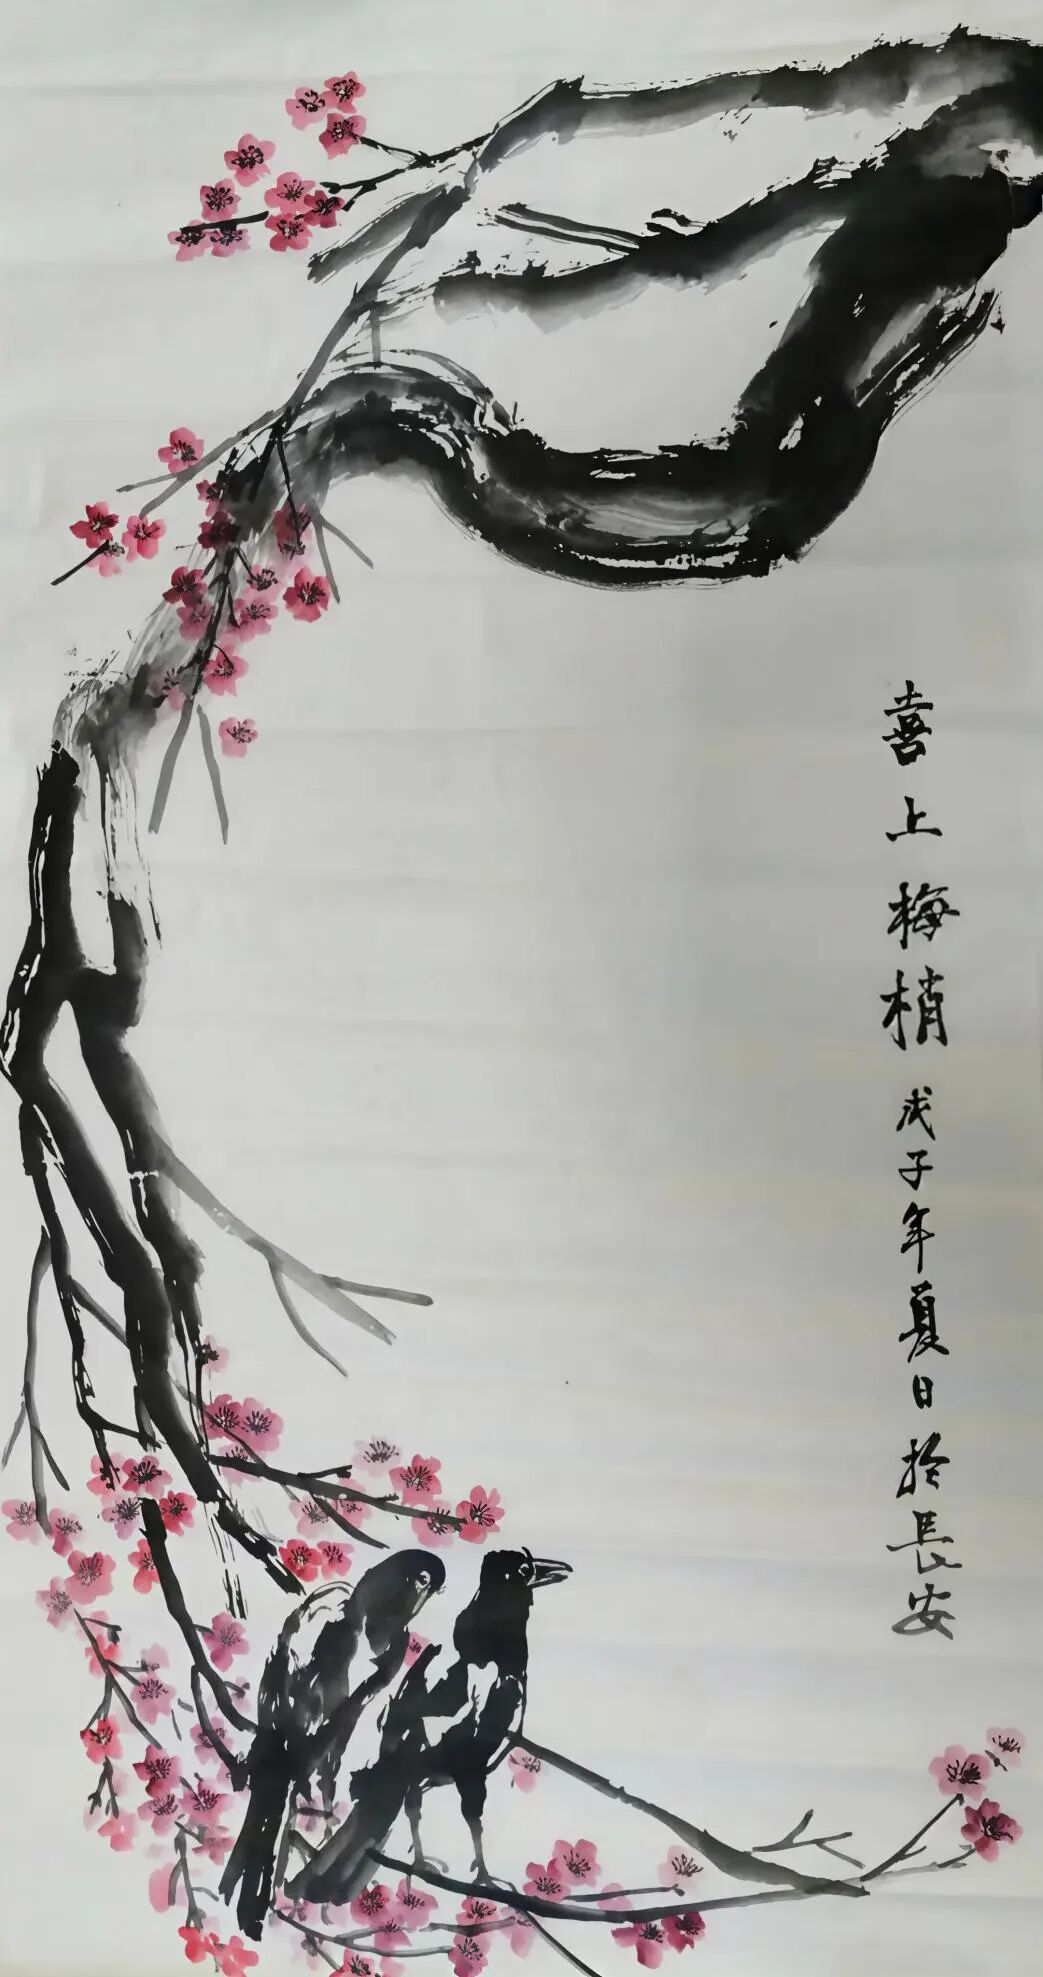 喜上梅梢 戊子年夏日於長安